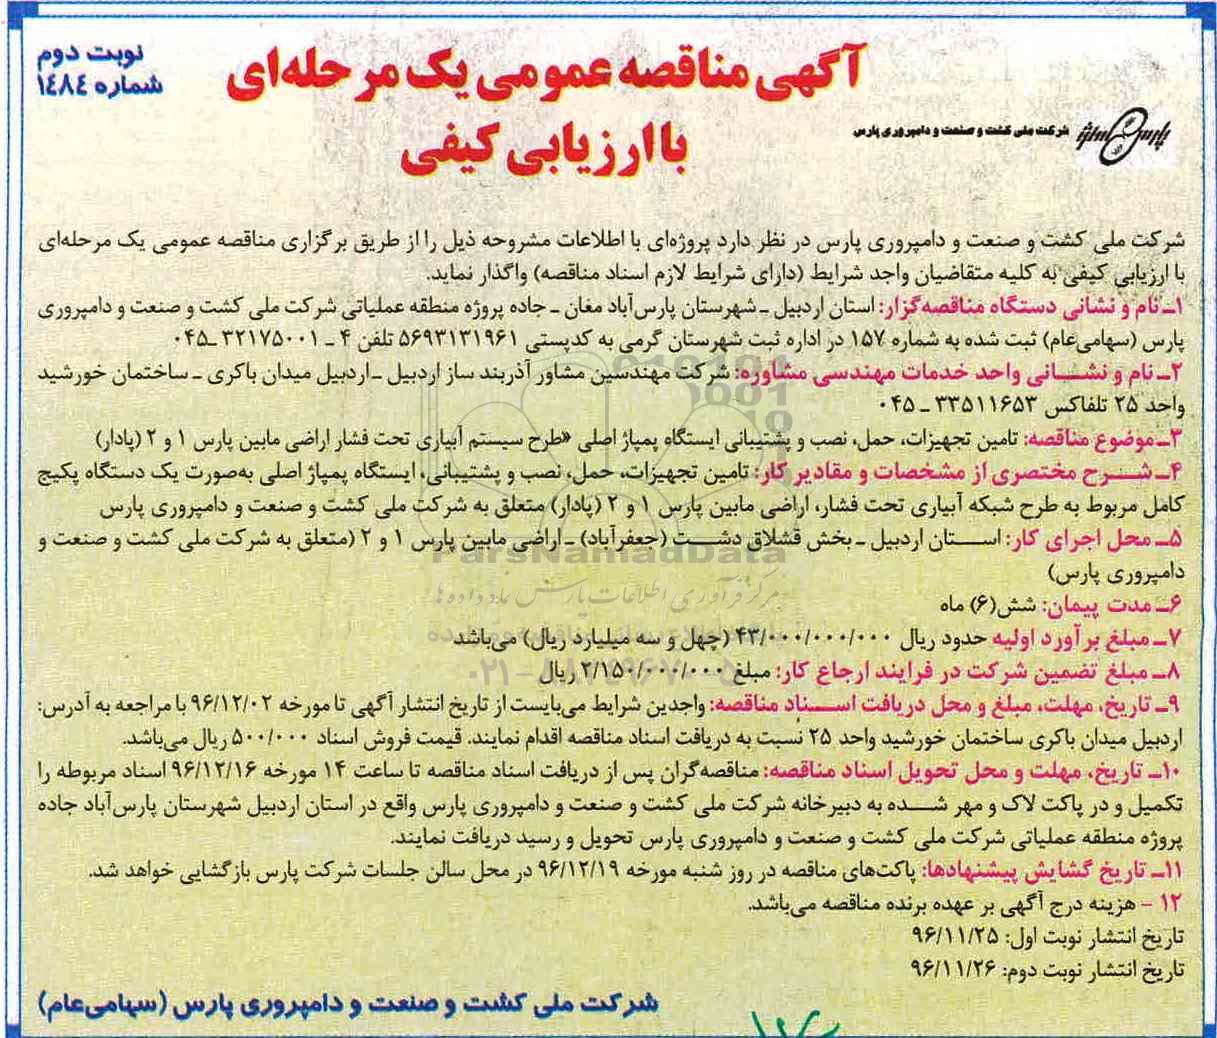 نوبت دوم
شماره ۱۴۸۴
آگهی مناقصه عمومی یک مرحله‌ای
با ارزیابی کیفی
پارس
شرکت ملی کشت و صنعت و دامپروری پارس
شرکت ملی کشت و صنعت و دامپروری پارس در نظر دارد پروژه‌ای با اطلاعات مشروحه ذیل را از طریق برگزاری مناقصه عمومی یک مرحله‌ای
با ارزیابی کیفی به کلیه متقاضیان واجد شرایط (دارای شرایط لازم اسناد مناقصه) واگذار نماید.
۱ـ نام و نشانی دستگاه مناقصه‌گزار: استان اردبیل ـ شهرستان پارس‌آباد مغان ـ جاده پروژه منطقه عملیاتی شرکت ملی کشت و صنعت و دامپروری
پارس (سهامی‌عام) ثبت شده به شماره ۱۵۷ در اداره ثبت شهرستان گرمی به کدپستی ۵۶۹۳۱۳۱۹۶۱ تلفن ۴ ـ ۳۲۱۷۵۰۰۱ ـ۰۴۵
۲ـ نام و نشـــانی واحد خدمات مهندسی مشاوره: شرکت مهندسین مشاور آذربند ساز اردبیل ـ اردبیل میدان باکری ـ ساختمان خورشید
واحد ۲۵ تلفاکس ۳۳۵۱۱۶۵۳ ـ ۰۴۵
۳ـ موضوع مناقصه: تامین تجهیزات، حمل، نصب و پشتیبانی ایستگاه پمپاژ اصلی «طرح سیستم آبیاری تحت فشار اراضی مابین پارس ۱ و ۲ (پادار)
۴ـ شـــرح مختصری از مشخصات و مقادیر کار: تامین تجهیزات، حمل، نصب و پشتیبانی، ایستگاه پمپاژ اصلی به‌صورت یک دستگاه پکیج
کامل مربوط به طرح شبکه آبیاری تحت فشار، اراضی مابین پارس ۱ و ۲ (پادار) متعلق به شرکت ملی کشت و صنعت و دامپروری پارس
۵ـ محل اجرای کار: اســـتان اردبیل ـ بخش قشلاق دشـــت (جعفرآباد) ـ اراضی مابین پارس ۱ و ۲ (متعلق به شرکت ملی کشت و صنعت و
ParsNamadData
دامپروری پارس)
مرکز فرآوری اطلاعات پارس نماد داده ها
۶ـ مدت پیمان: شش(۶) ماه
۷ـ مبلغ برآورد اولیه حدود ریال ۴۳/۰۰۰/۰۰۰/۰۰۰ (چهل و سه میلیارد ریال) می‌باشد
۸ـ مبلغ تضمین شرکت در فرایند ارجاع کار: مبلغ ۲/۱۵۰/۰۰۰/۰۰۰ ریال
۹ـ تاریخ، مهلت، مبلغ و محل دریافت اســـناد مناقصه: واجدین شرایط می‌بایست از تاریخ انتشار آگهی تا مورخه ۹۶/۱۲/۰۲ با مراجعه به آدرس:
اردبیل میدان باکری ساختمان خورشید واحد ۲۵ نسبت به دریافت اسناد مناقصه اقدام نمایند. قیمت فروش اسناد ۵۰۰/۰۰۰ ریال می‌باشد.
۱۰ـ تاریخ، مهلت و محل تحویل اسناد مناقصه: مناقصه‌گران پس از دریافت اسناد مناقصه تا ساعت ۱۴ مورخه ۹۶/۱۲/۱۶ اسناد مربوطه را
تکمیل و در پاکت لاک و مهر شـــده به دبیرخانه شرکت ملی کشت و صنعت و دامپروری پارس واقع در استان اردبیل شهرستان پارس‌آباد جاده
پروژه منطقه عملیاتی شرکت ملی کشت و صنعت و دامپروری پارس تحویل و رسید دریافت نمایند.
۱۱ـ تاریخ گشایش پیشنهادها: پاکت‌های مناقصه در روز شنبه مورخه ۹۶/۱۲/۱۹ در محل سالن جلسات شرکت پارس بازگشایی خواهد شد.
۱۲ - هزینه درج آگهی بر عهده برنده مناقصه می‌باشد.
تاریخ انتشار نوبت اول: ۹۶/۱۱/۲۵
تاریخ انتشار نوبت دوم: ۹۶/۱۱/۲۶
شرکت ملی کشت و صنعت و دامپروری پارس (سهامی‌عام)